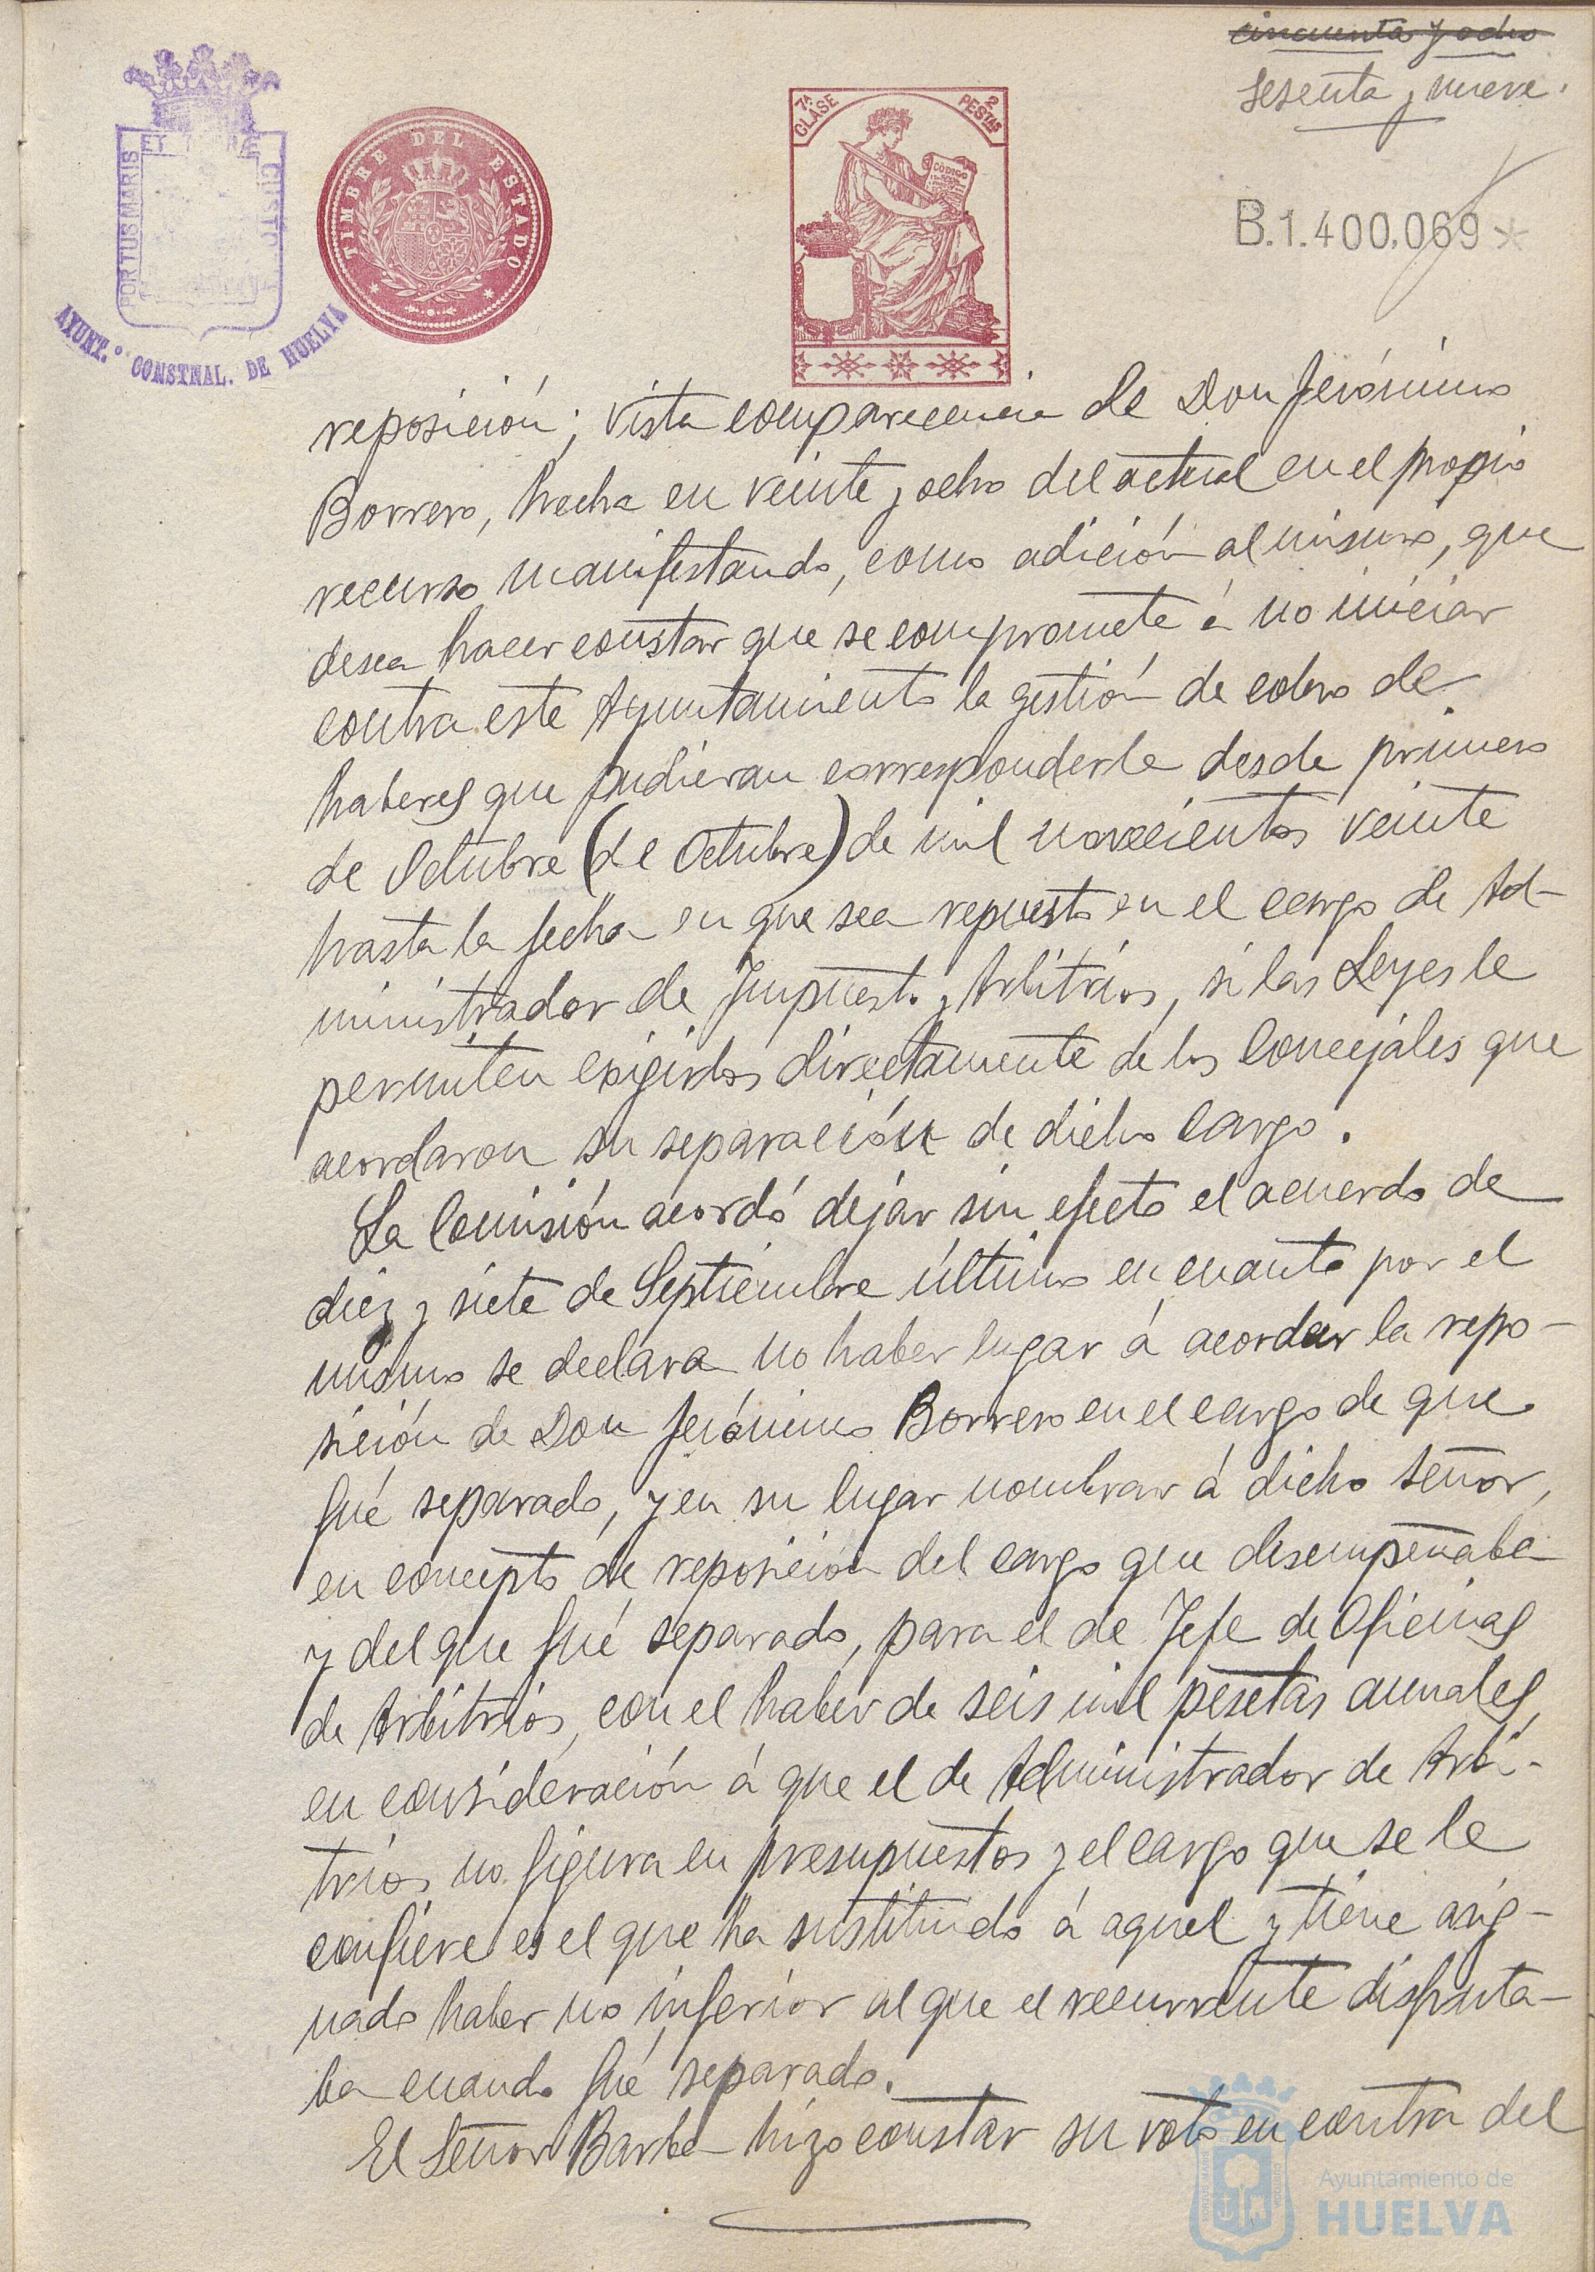 cincuenta y ocho
Sesenta y nueve.
PORTUS MARIS ET TERRE CUSTODIA
AYUNT.º CONSTNAL. DE HUELVA
TIMBRE DEL ESTADO
7ª CLASE
2 PESTAS
CODIGO
B.1.400.069
reposición; vista comparecencia de Don Jerónimo
Borrero, hecha en veinte y ocho del actual en el propio
recurso manifestando, como adición al mismo, que
desea hacer constar que se compromete á no iniciar
contra este Ayuntamiento la gestión de cobro de
haberes que pudieran corresponderle desde primero
de Octubre (de Octubre) de mil novecientos veinte
hasta la fecha en que sea repuesto en el cargo de Ad-
ministrador de Impuestos y Arbitrios, si las Leyes le
permiten exigirlos directamente de los Concejales que
acordaron su separación de dicho cargo.
La Comisión acordó dejar sin efecto el acuerdo de
diez y siete de Septiembre último en cuanto por el
mismo se declara no haber lugar á acordar la repo-
sición de Don Jerónimo Borrero en el cargo de que
fué separado, y en su lugar nombrar á dicho señor,
en concepto de reposición del cargo que desempeñaba
y del que fué separado, para el de Jefe de Oficinas
de Arbitrios, con el haber de seis mil pesetas anuales,
en consideración á que el de Administrador de Arbi-
trios no figura en presupuestos y el cargo que se le
confiere es el que ha sustituido á aquel y tiene asig-
nado haber no inferior al que el recurrente disfruta-
ba cuando fué separado.
El Señor Barba hizo constar su voto en contra del
Ayuntamiento de
HUELVA